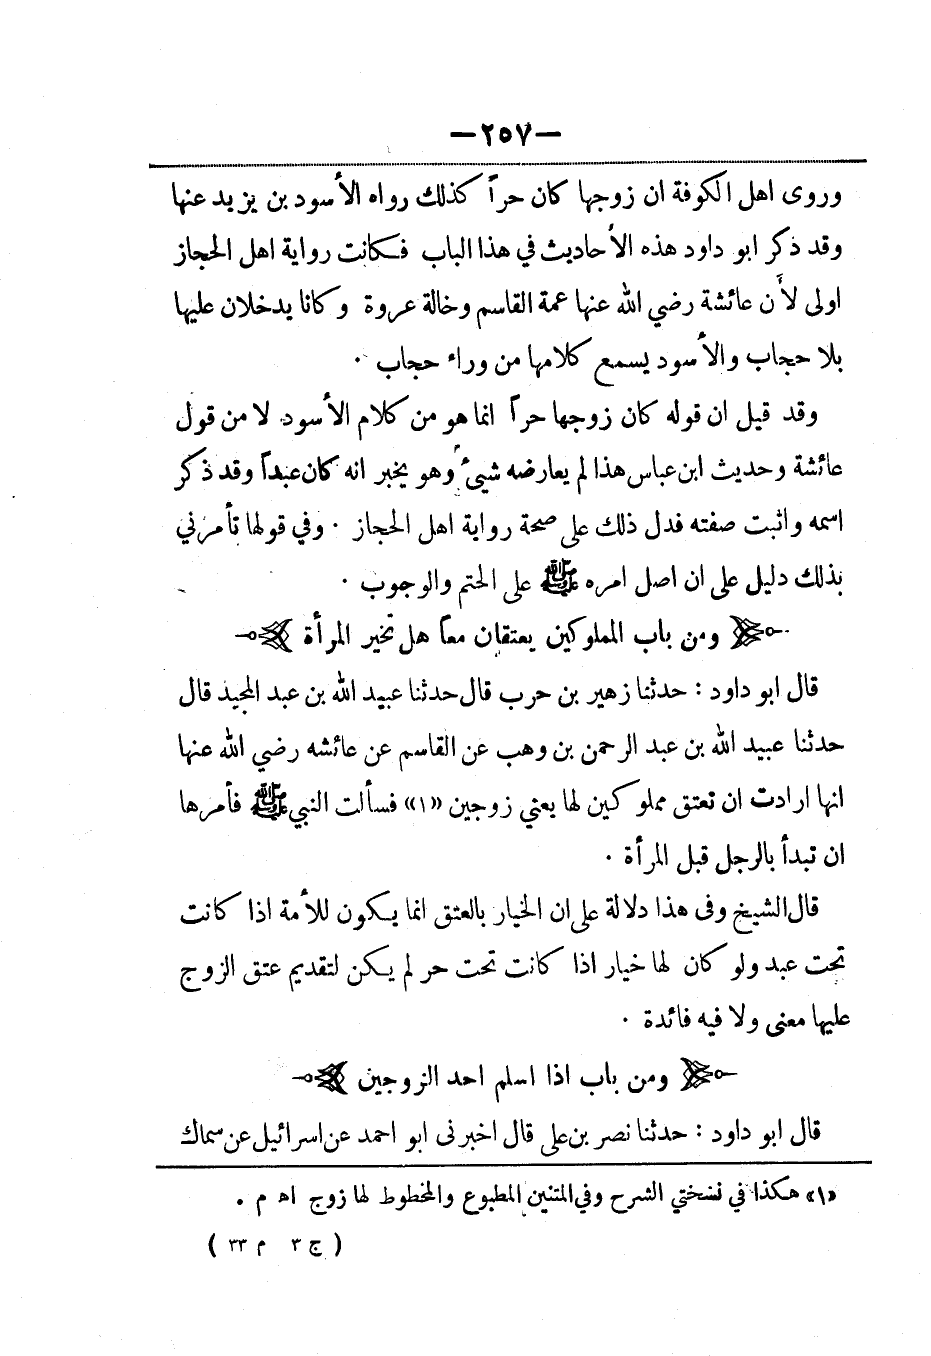 —٢٥٧—
وروى اهل الكوفة ان زوجها كان حراً كذلك رواه الأسود بن يزيد عنها
وقد ذكر ابو داود هذه الأحاديث في هذا الباب فكانت رواية اهل الحجاز
اولى لأن عائشة رضي الله عنها عمة القاسم وخالة عروة وكانا يدخلان عليها
بلا حجاب والأسود يسمع كلامها من وراء حجاب .
وقد قيل ان قوله كان زوجها حراً انما هو من كلام الأسود لا من قول
عائشة وحديث ابن عباس هذا لم يعارضه شيئ وهو يخبر انه كان عبداً وقد ذكر
اسمه واثبت صفته فدل ذلك على صحة رواية اهل الحجاز . وفي قولها تأمرني
بذلك دليل على ان اصل امره ﷺ على الحتم والوجوب .
ومن باب المملوكين يعتقان معاً هل تخير المرأة
قال ابو داود : حدثنا زهير بن حرب قال حدثنا عبيد الله بن عبد المجيد قال
حدثنا عبيد الله بن عبد الرحمن بن وهب عن القاسم عن عائشه رضي الله عنها
انها ارادت ان تعتق مملوكين لها يعني زوجين «١» فسألت النبي ﷺ فأمرها
ان تبدأ بالرجل قبل المرأة .
قال الشيخ وفى هذا دلالة على ان الخيار بالعتق انما يكون للأمة اذا كانت
تحت عبد ولو كان لها خيار اذا كانت تحت حر لم يكن لتقديم عتق الزوج
عليها معنى ولا فيه فائدة .
ومن باب اذا اسلم احد الزوجين
قال ابو داود : حدثنا نصر بن على قال اخبرنى ابو احمد عن اسرائيل عن سماك
«١» هكذا في نسختي الشرح وفي المتنين المطبوع والمخطوط لها زوج اه م .
( ج ٣ م ٣٣ )